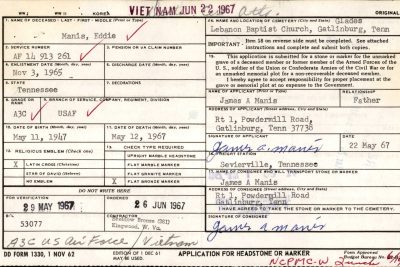 VIETNAM JUN 22 1967
1. NAME OF DECEASED - LAST - FIRST - MIDDLE (Print or Type)
Manis, Eddie
2. SERVICE NUMBER
3. PENSION OR VA CLAIM NUMBER
AF 14 913 261
4. ENLISTMENT DATE
5. DISCHARGE DATE
Nov 3, 1965
6. STATE
7. DECORATIONS
Tennessee
8. GRADE OR RANK
9. BRANCH OF SERVICE, COMPANY, REGIMENT, DIVISION
A3C
USAF
10. DATE OF BIRTH (Month, day, year)
11. DATE OF DEATH (Month, day, year)
May 11, 1947
May 12, 1967
12. RELIGIOUS EMBLEM (Check one)
13. CHECK TYPE REQUIRED
UPRIGHT MARBLE HEADSTONE
X LATIN CROSS (Christian)
FLAT MARBLE MARKER
STAR OF DAVID (Hebrew)
FLAT GRANITE MARKER
NO EMBLEM
X FLAT BRONZE MARKER
DO NOT WRITE HERE
FOR VERIFICATION
ORDERED
29 MAY 1967
26 JUN 1967
53077
CONTRACTOR
Meadow Bronze
Kingwood, W. Va
A3C US Air Force / Vietnam
14. NAME AND LOCATION OF CEMETERY (City and State) Glades
Lebanon Baptist Church, Gatlinburg, Tenn
IMPORTANT
Item 18 on reverse side must be completed. See attached instructions and complete and submit both copies.
This application is submitted for a stone or marker for the unmarked grave of a deceased member or former member of the Armed Forces of the U.S., soldier of the Union or Confederate Armies of the Civil War or for an unmarked memorial plot for a non-recoverable deceased member.
I hereby agree to accept responsibility for proper placement at the grave or memorial plot at no expense to the Government.
NAME OF APPLICANT (Print or Type)
RELATIONSHIP
James A Manis
Father
ADDRESS OF APPLICANT (Street address, City and State)
Rt 1, Powdermill Road,
Gatlinburg, Tenn 37738
SIGNATURE OF APPLICANT
DATE
James A. Manis
22 May 67
16. FREIGHT STATION
Sevierville, Tennessee
17. NAME OF CONSIGNEE WHO WILL TRANSPORT STONE OR MARKER
James A Manis
ADDRESS OF CONSIGNEE (Street address, City and State)
Rt 1, Powdermill Road
Gatlinburg, Tenn
I HAVE AGREED TO TAKE THE STONE OR MARKER TO THE CEMETERY.
SIGNATURE OF CONSIGNEE
James A Manis
DD FORM 1330, 1 NOV 62
APPLICATION FOR HEADSTONE OR MARKER
NCPMC-W